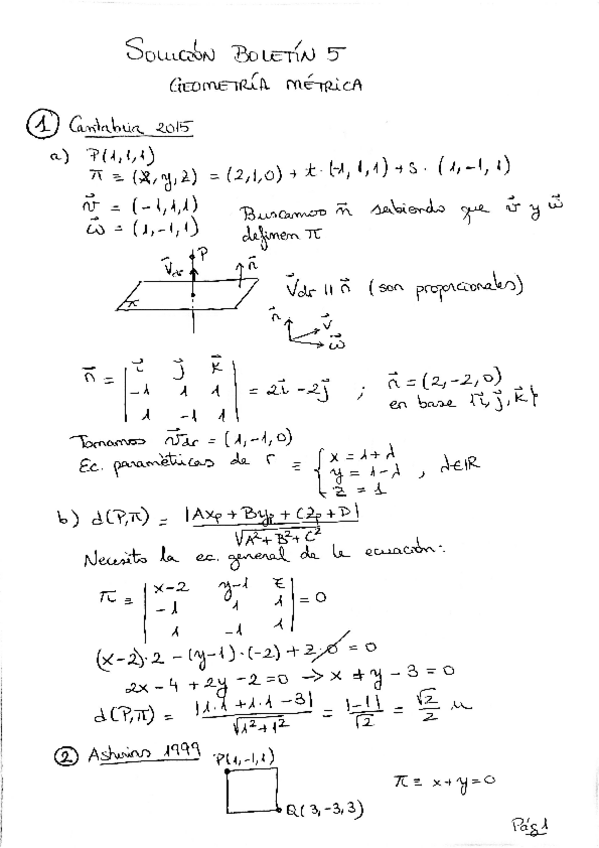 SOLUCIÓN BOLETÍN 5
GEOMETRÍA MÉTRICA
1 Cantabria 2015
a) P(1,1,1)
π ≡ (x, y, z) = (2,1,0) + t·(-1,1,1) + s·(1,-1,1)
v⃗ = (-1,1,1)
w⃗ = (1,-1,1)
Buscamos n⃗ sabiendo que v⃗ y w⃗
definen π
P
v⃗dr n⃗
π
v⃗dr || n⃗ (son proporcionales)
n⃗ v⃗
w⃗
n⃗ = | i⃗ j⃗ k⃗ |
| -1 1 1 | = 2i⃗ - 2j⃗ ; n⃗ = (2,-2,0)
| 1 -1 1 | en base {i⃗, j⃗, k⃗}
Tomamos v⃗dr = (1,-1,0)
Ec. paramètricas de r ≡ { x = 1+λ
y = 1-λ , λ∈ℝ
z = 1
b) d(P,π) = |Axp + Byp + Czp + D| / √A²+B²+C²
Necesito la ec. general de la ecuación:
π ≡ | x-2 y-1 z |
| -1 1 1 | = 0
| 1 -1 1 |
(x-2)·2 - (y-1)·(-2) + z·0 = 0
2x - 4 + 2y - 2 = 0 → x + y - 3 = 0
d(P,π) = |1·1 + 1·1 - 3| / √1²+1² = |-1| / √2 = √2 / 2 u
2 Asturias 1999
P(1,-1,1)
Q(3,-3,3)
π ≡ x+y=0
Pág 1